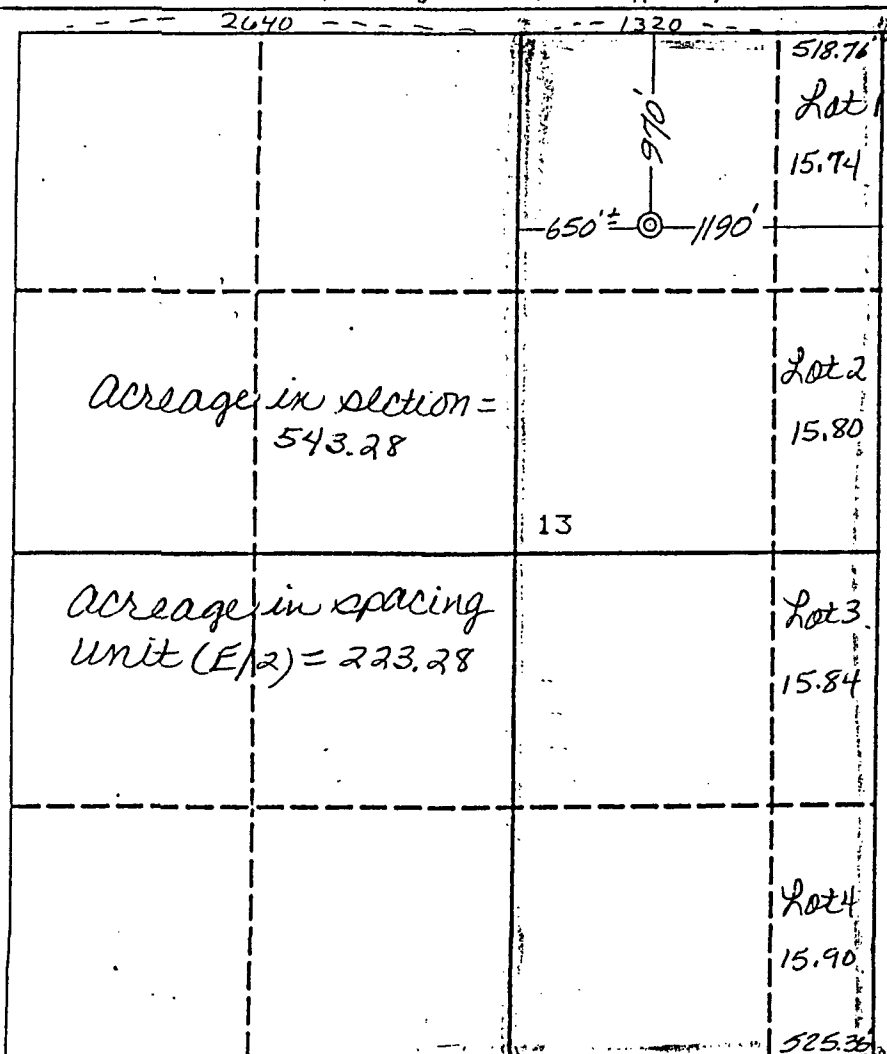 2640 1320
518.76'
Lot 1
15.74
970'
650'± 1190'
Lot 2
15.80
Acreage in section =
543.28
13
Acreage in spacing
Unit (E/2) = 223.28
Lot 3
15.84
Lot 4
15.90
525.36'